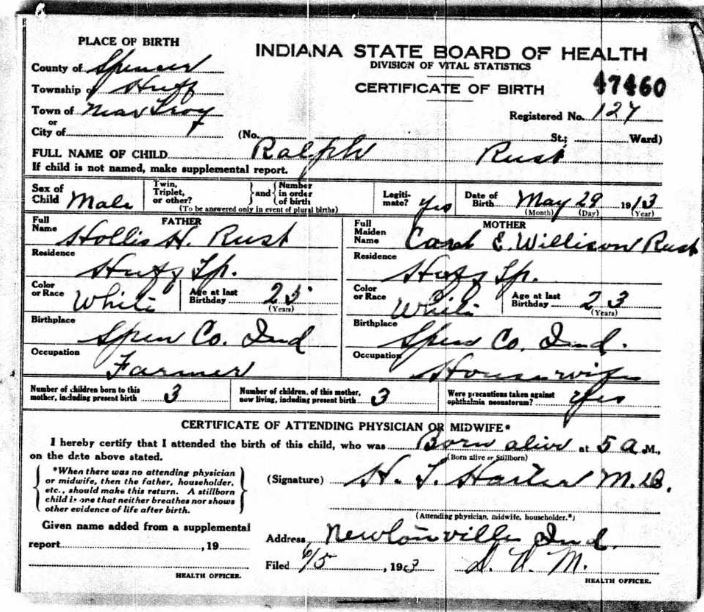 PLACE OF BIRTH
County of Spencer
Township of Huff
Town of Near Troy
or
City of
INDIANA STATE BOARD OF HEALTH
DIVISION OF VITAL STATISTICS
CERTIFICATE OF BIRTH
47460
Registered No. 127
(No. St.; Ward)
FULL NAME OF CHILD Ralph Rust
If child is not named, make supplemental report.
Sex of Child Male
Twin, Triplet, or other?
and Number in order of birth
(To be answered only in event of plural births)
Legitimate? yes
Date of Birth May 29 1913
(Month) (Day) (Year)
FATHER
Full Name Hollis H. Rust
Residence Huff Tp.
Color or Race White
Age at last Birthday 25
(Years)
Birthplace Spen Co. Ind
Occupation Farmer
MOTHER
Full Maiden Name E. Willison Rust
Residence Huff Tp.
Color or Race White
Age at last Birthday 23
(Years)
Birthplace Spen Co. Ind.
Occupation Housewife
Number of children born to this mother, including present birth 3
Number of children, of this mother, now living, including present birth 3
Were precautions taken against ophthalmia neonatorum? yes
CERTIFICATE OF ATTENDING PHYSICIAN OR MIDWIFE*
I hereby certify that I attended the birth of this child, who was Born alive at 5 a M.,
(Born alive or Stillborn)
on the date above stated.
*When there was no attending physician
or midwife, then the father, householder,
etc., should make this return. A stillborn
child is one that neither breathes nor shows
other evidence of life after birth.
(Signature) M.D.
(Attending physician, midwife, householder.*)
Given name added from a supplemental
report , 19
HEALTH OFFICER.
Address Newtonville Ind.
Filed 6/5, 1913
HEALTH OFFICER.